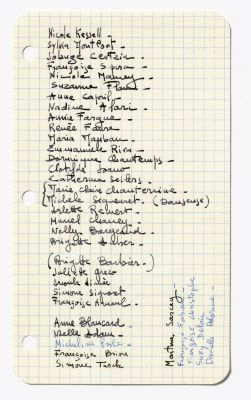 Nicole Kessell -
Sylvia Montfort -
Solange Certain -
Françoise Spira -
Nicole Maurey -
Suzanne Flon -
Anne Capril -
Nadine Alari -
Annie Fargue -
Renée Faure -
Maria Mauban -
Emmanuele Riva -
Dominique Chautemps -
Clotilde Joano
Catherine Sellers -
Marie Chris chautereine -
(Michele Signoret - (Danseuse)
Arlette Renert -
Muriel Chaney -
Nelly Borgeaud -
Brigitte Auber -
(Brigitte Barbier -)
Juliette greco
Anouk Aimée -
Simone Signoret
Françoise Arnoul -
Anne Blancard -
Noelle Adam -
Micheline Presle -
Françoise Brion
Simone Turck
Martine Sarcey
Françoise Christophe
Suzy Delair
Danielle Delorme -